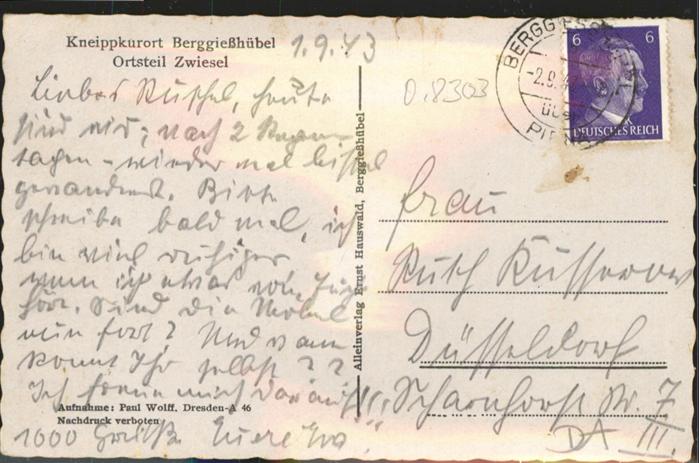 Kneippkurort Berggießhübel
Ortsteil Zwiesel
1.9.43
Liebes Ruschel, heute
sind wir, nach 2 Regen-
tagen - wieder mal bissel
gewandert. Bitte
schreibe bald mal, ich
bin viel ruhiger
wenn ich etwas von
hör. Sind die Möbel
nun fort? Und wann
kommt Ihr selbst??
Ich freue mich darauf!!
1000 Grüße Eure Eva.
Aufnahme: Paul Wolff, Dresden-A 46
Nachdruck verboten
Alleinverlag Ernst Hauswald, Berggießhübel
0,8303
BERGGIESSHÜBEL
-2.9.43
über
PIRNA
6 6
DEUTSCHES REICH
Frau
Ruth Kusserow
Düsseldorf
Scharnhorststr. 7
DA III.